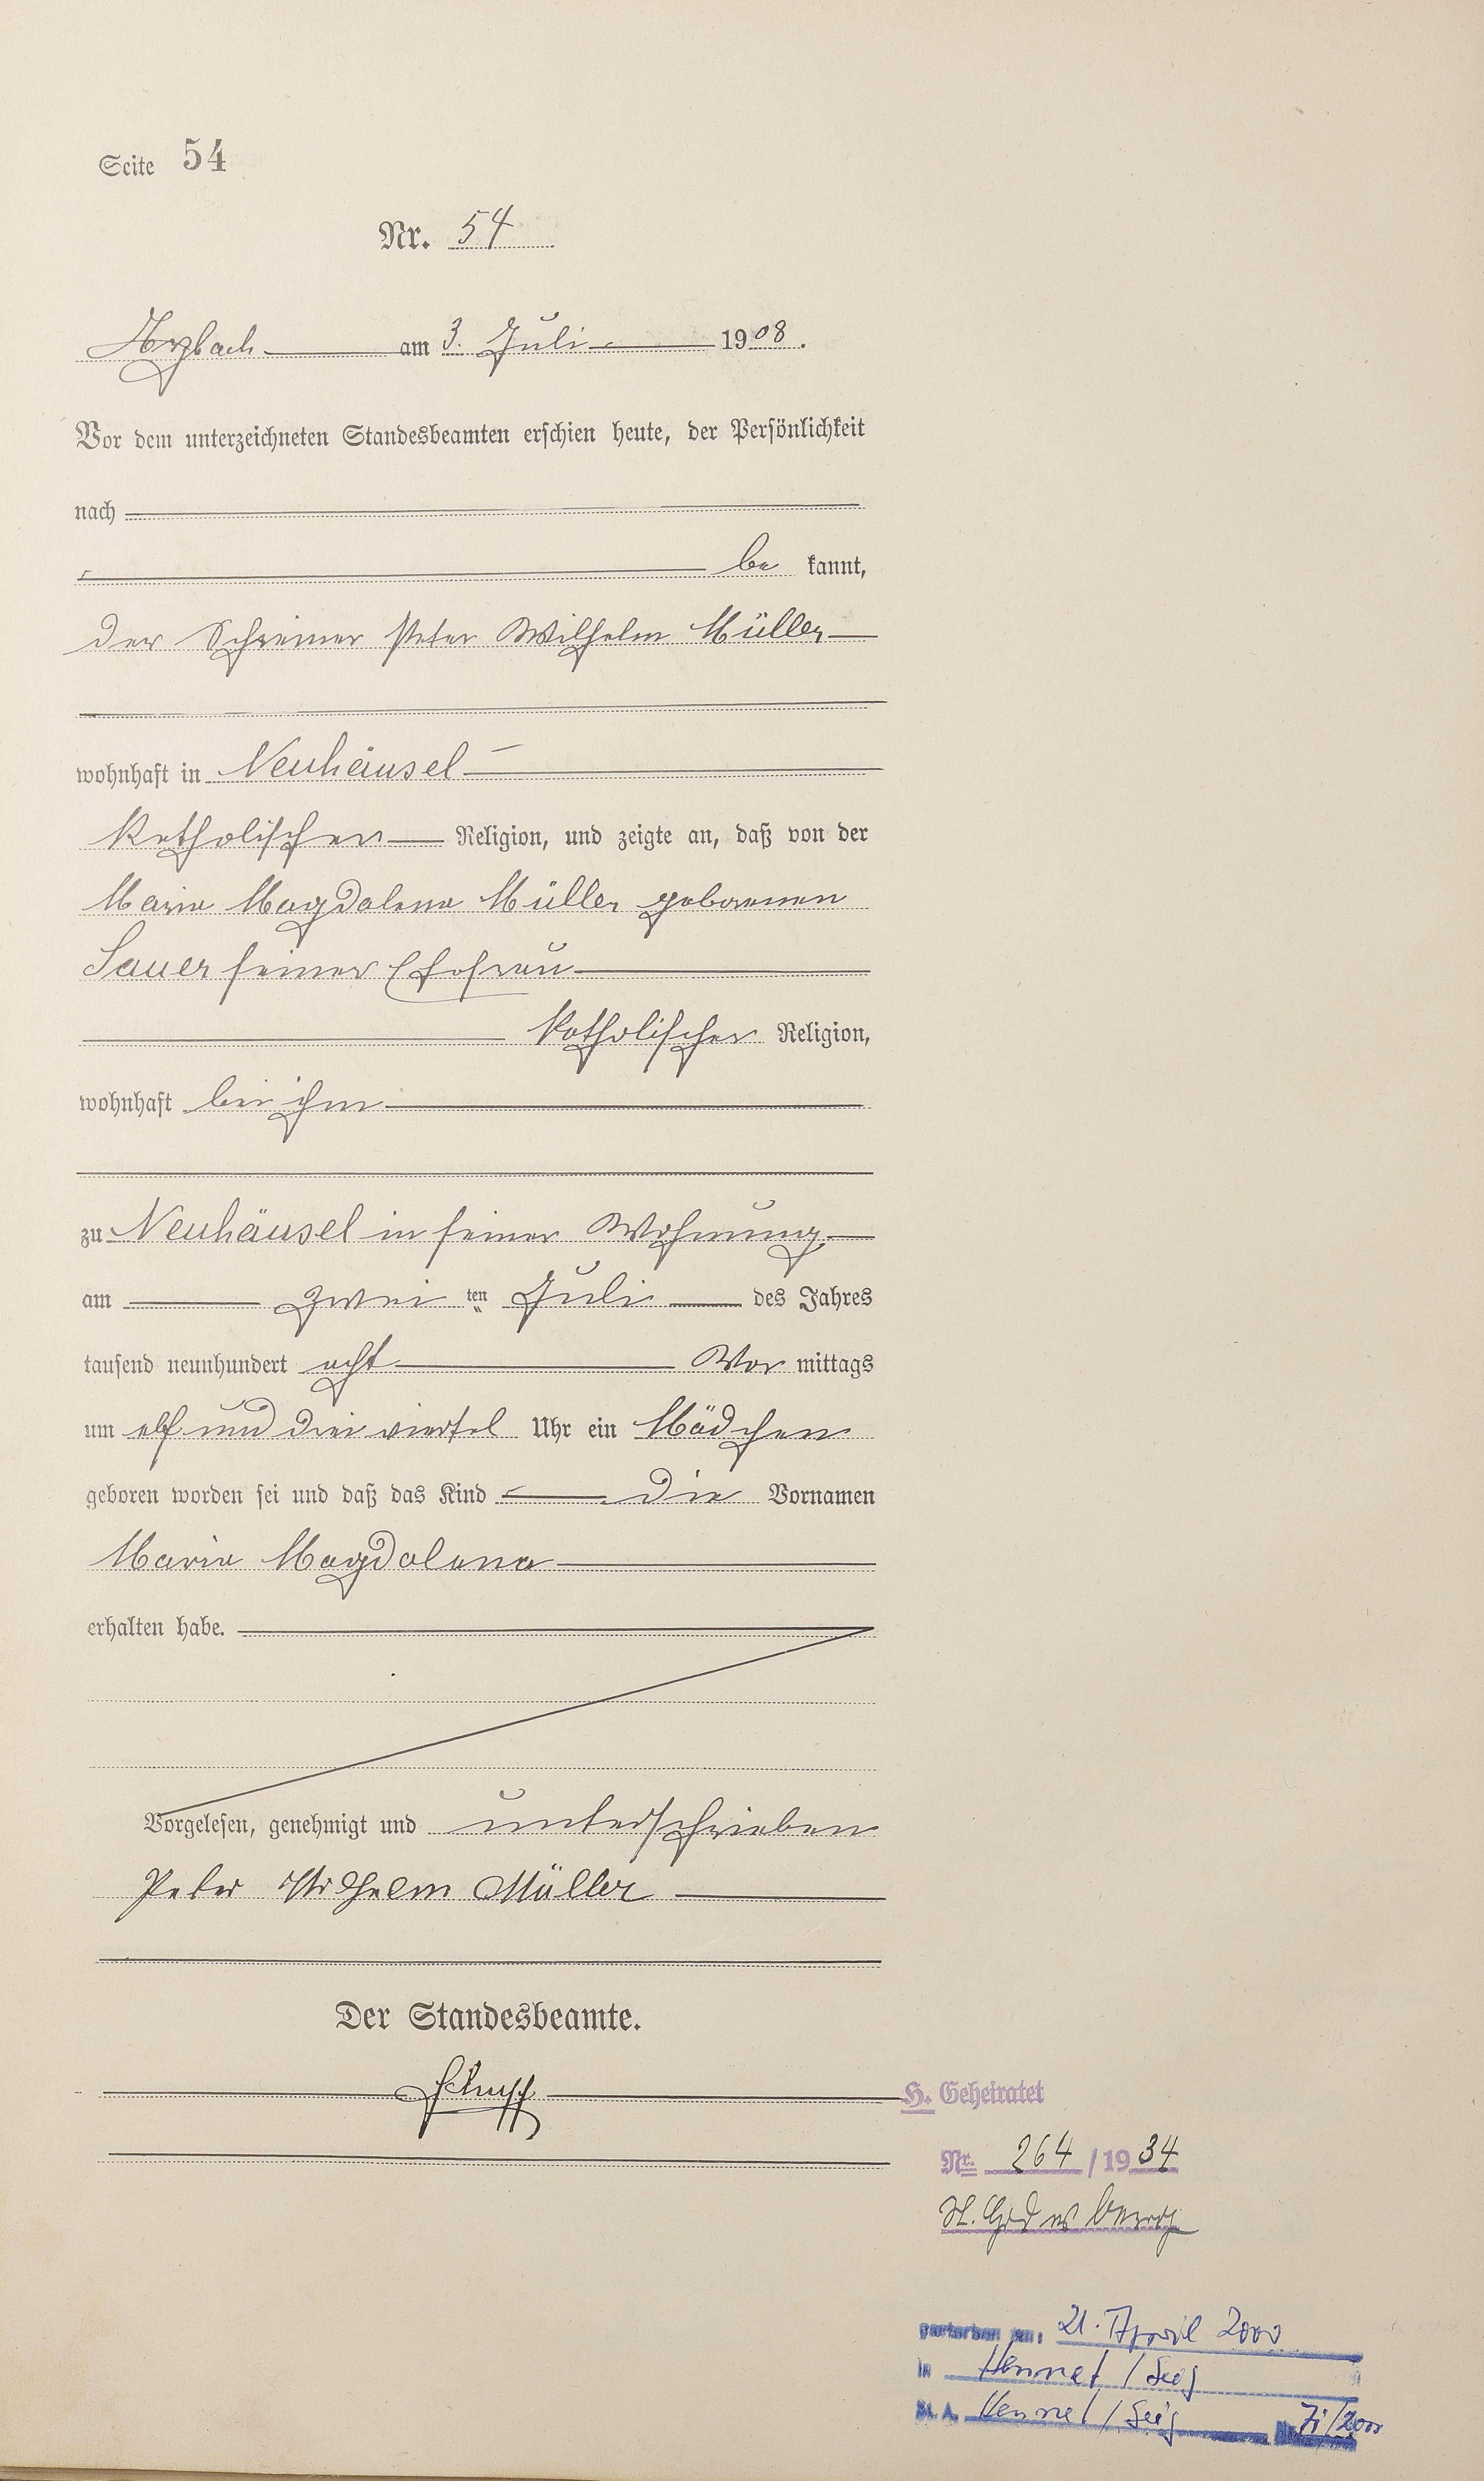 Seite 54
Nr. 54
Arzbach am 3. Juli 1908.
Vor dem unterzeichneten Standesbeamten erschien heute, der Persönlichkeit
nach
be kannt,
der Schreiner Peter Wilhelm Müller
wohnhaft in Neuhäusel
katholischer Religion, und zeigte an, daß von der
Maria Magdalena Müller geborenen
Sauer seiner Ehefrau
katholischer Religion,
wohnhaft bei ihm
zu Neuhäusel in seiner Wohnung
am zwei ten Juli des Jahres
tausend neunhundert acht Vor mittags
um elf und drei viertel Uhr ein Mädchen
geboren worden sei und daß das Kind die Vornamen
Maria Magdalena
erhalten habe.
Vorgelesen, genehmigt und unterschrieben
Peter Wilhelm Müller
Der Standesbeamte.
H. Geheiratet
Nr. 264 / 1934
gestorben am: 21. April 2000
in Hennef / Sieg
St. A. Hennef / Sieg Nr. 71/2000